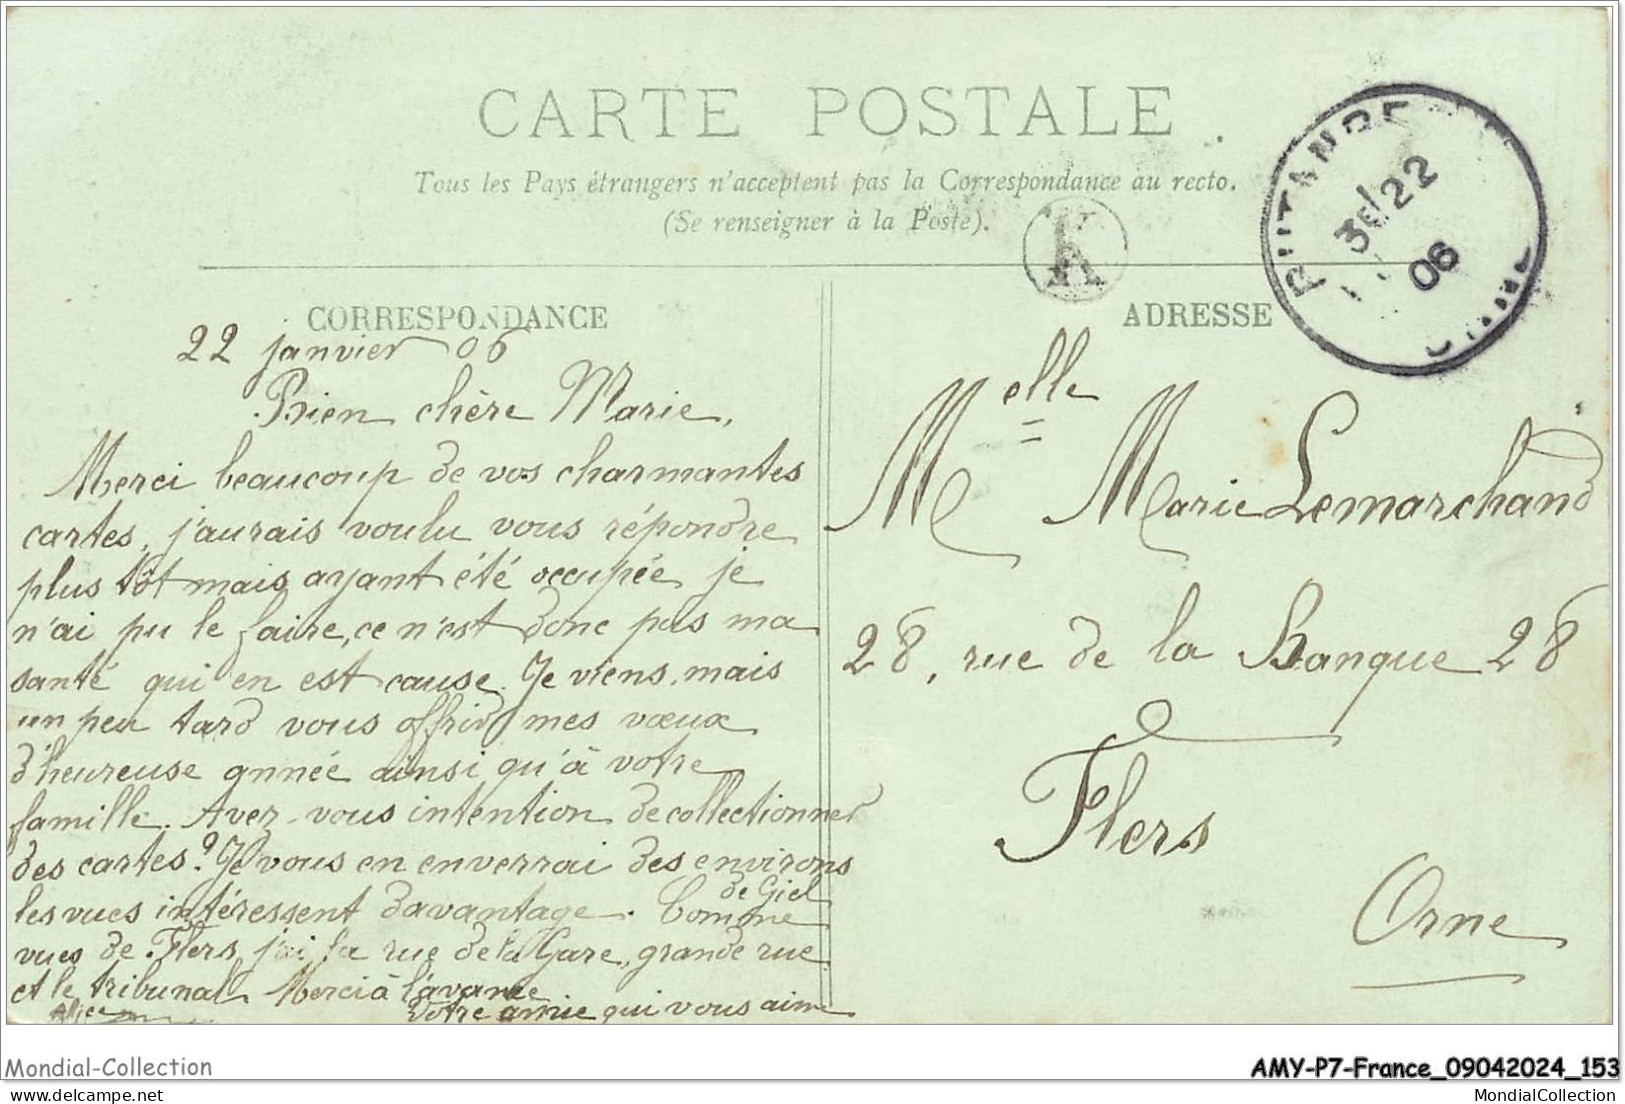 CARTE POSTALE
Tous les Pays étrangers n'acceptent pas la Correspondance au recto.
(Se renseigner à la Poste).
A
PUTANGE
3E/22
06
ORNE
CORRESPONDANCE
22 janvier 06
Bien chère Marie,
Merci beaucoup de vos charmantes
cartes, j'aurais voulu vous répondre
plus tôt mais ayant été occupée je
n'ai pu le faire, ce n'est donc pas ma
santé qui en est cause. Je viens, mais
un peu tard vous offrir mes vœux
d'heureuse année ainsi qu'à votre
famille. Avez-vous intention de collectionner
des cartes? Je vous en enverrai des environs
de Giel
les vues intéressent davantage. Comme
vues de Flers j'ai la rue de la Gare, grande rue
et le tribunal. Merci à l'avance
Votre amie qui vous aime
Alice
ADRESSE
Melle Marie Lemarchand
28, rue de la Banque 28
Flers
Orne
Mondial-Collection
AMY-P7-France_09042024_153
MondialCollection